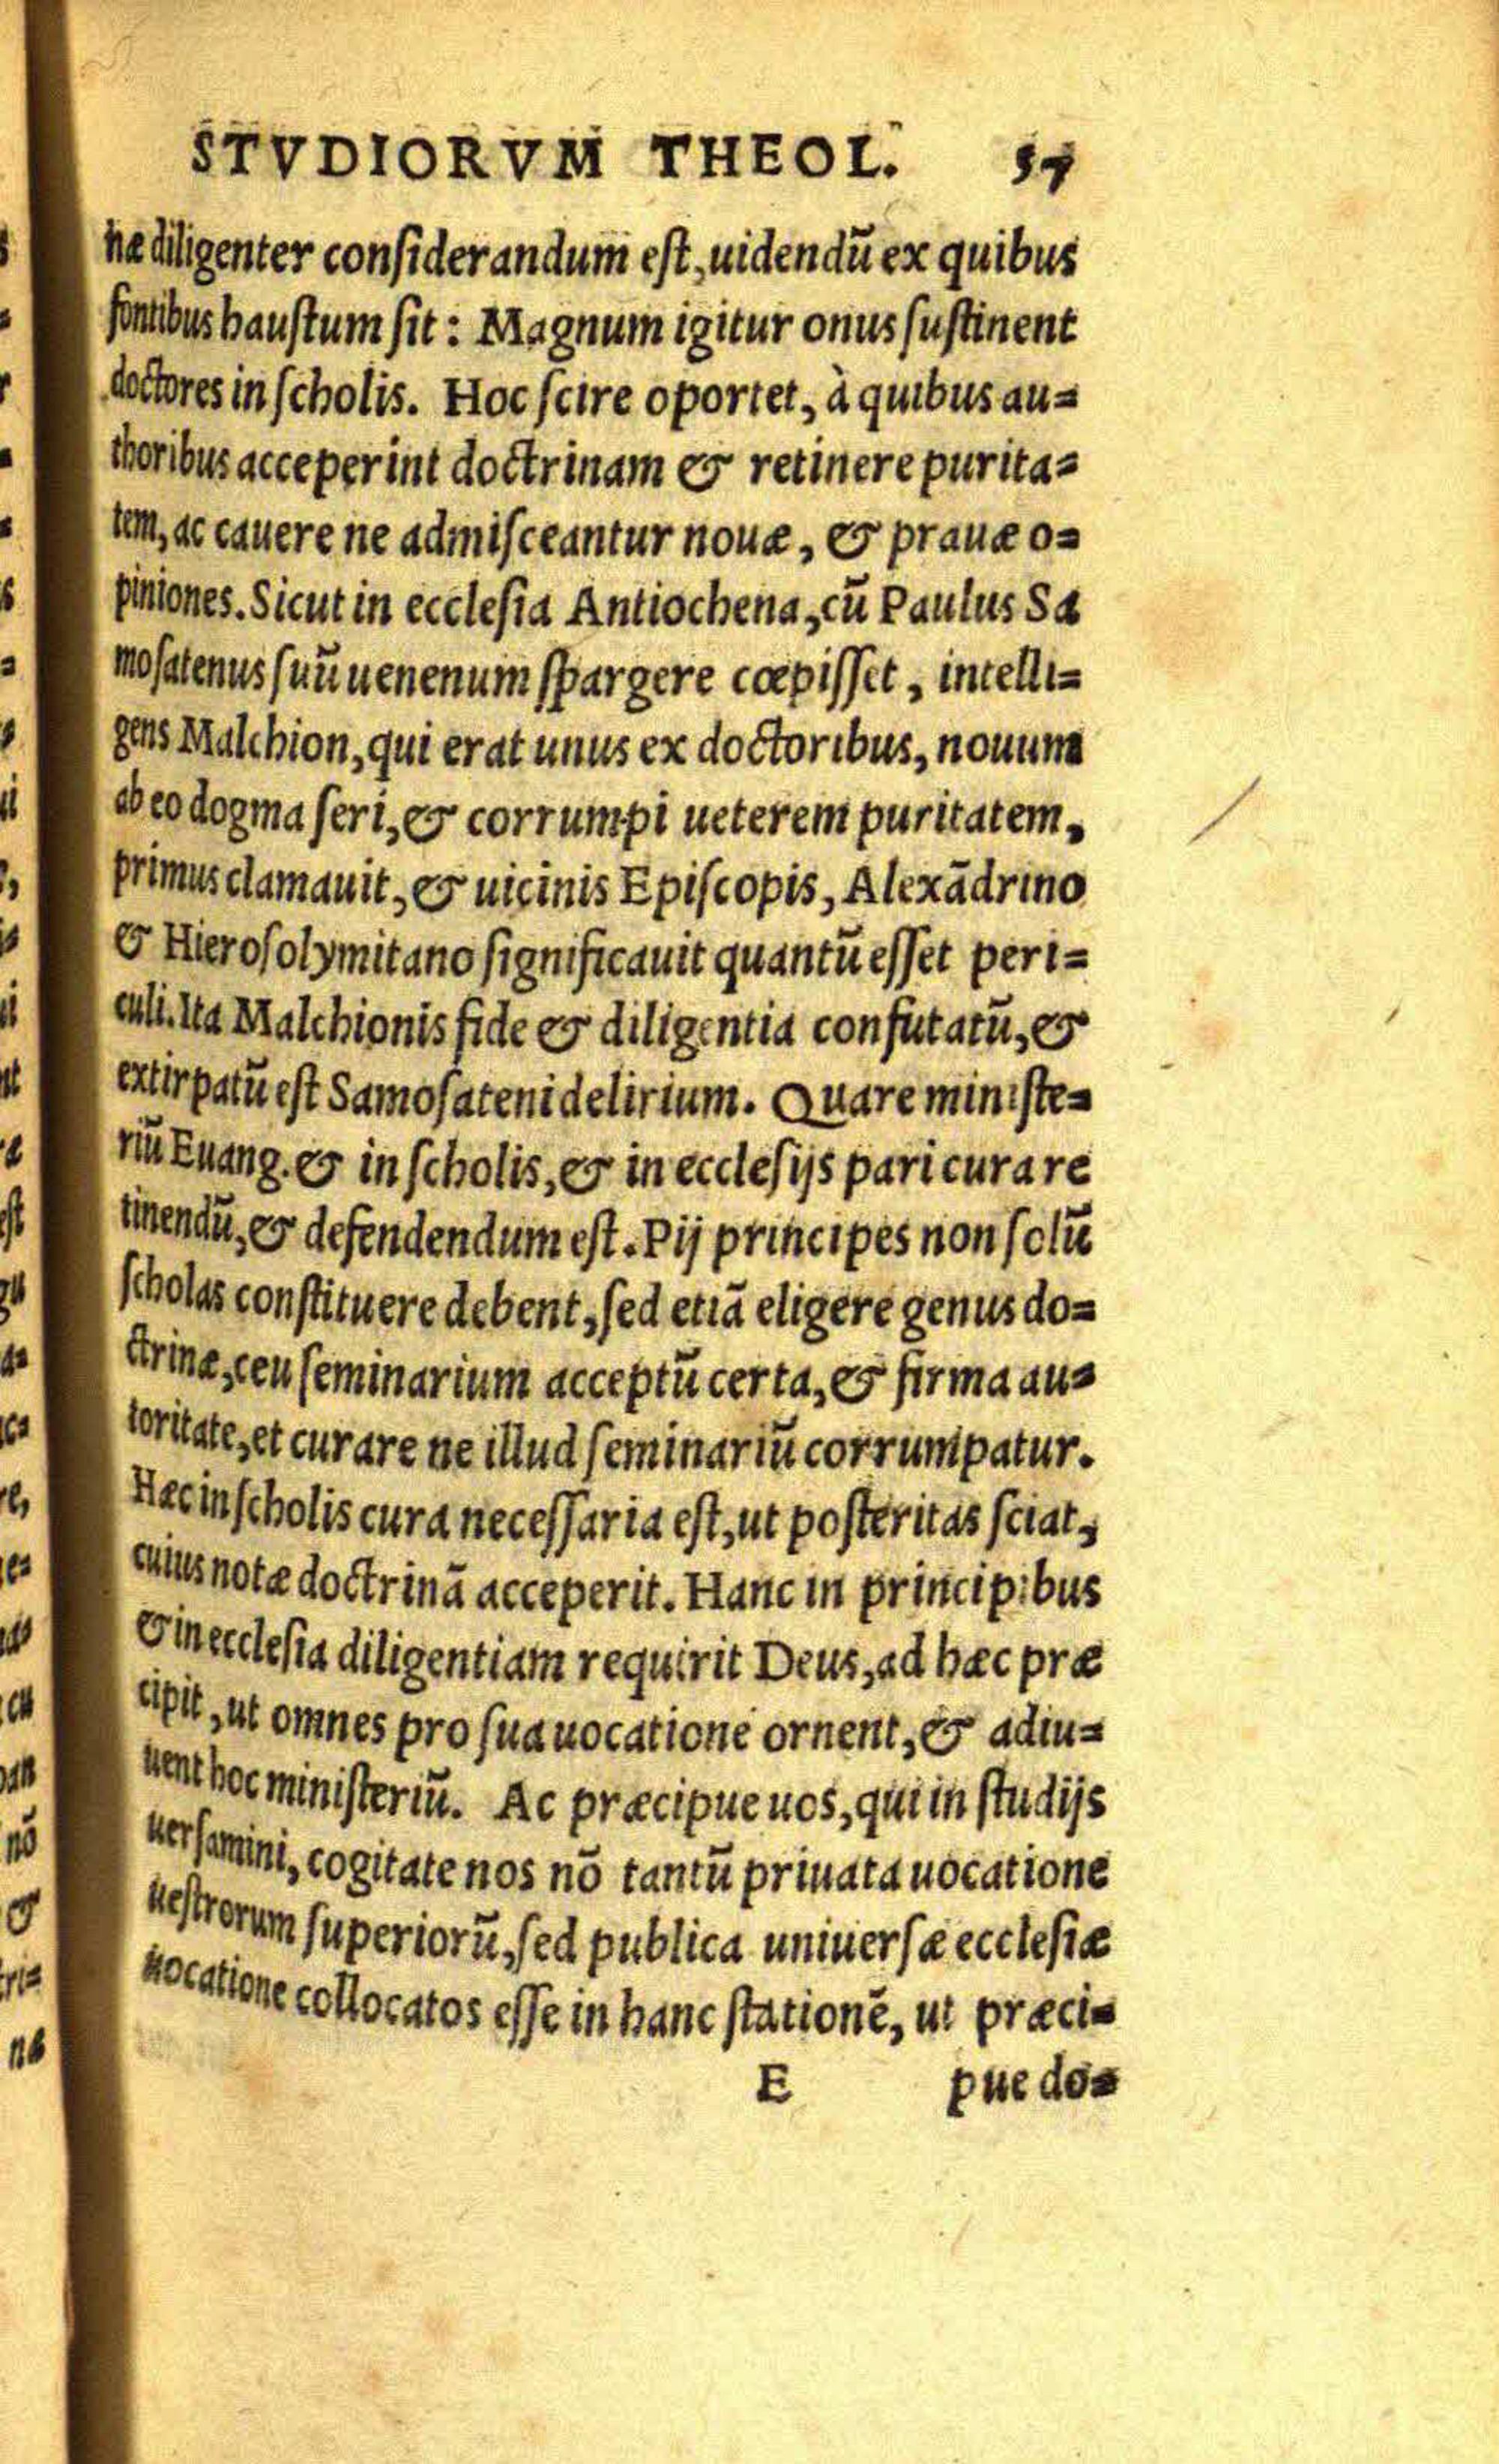 STVDIORVM THEOL. 57
næ diligenter considerandum est, uidendũ ex quibus
fontibus haustum sit: Magnum igitur onus sustinent
doctores in scholis. Hoc scire oportet, à quibus au=
thoribus acceperint doctrinam & retinere purita=
tem, ac cauere ne admisceantur nouæ, & prauæ o=
piniones. Sicut in ecclesia Antiochena, cũ Paulus Sa
mosatenus suũ uenenum spargere cœpisset, intelli=
gens Malchion, qui erat unus ex doctoribus, nouum
ab eo dogma seri, & corrumpi ueterem puritatem,
primus clamauit, & uicinis Episcopis, Alexãdrino
& Hierosolymitano significauit quantũ esset peri=
culi. Ita Malchionis fide & diligentia confutatũ, &
extirpatũ est Samosateni delirium. Quare ministe=
riũ Euang. & in scholis, & in ecclesijs pari cura re
tinendũ, & defendendum est. Pij principes non solũ
scholas constituere debent, sed etiã eligere genus do=
ctrinæ, ceu seminarium acceptũ certa, & firma au=
toritate, et curare ne illud seminariũ corrumpatur.
Hæc in scholis cura necessaria est, ut posteritas sciat,
cuius notæ doctrinã acceperit. Hanc in principibus
& in ecclesia diligentiam requirit Deus, ad hæc præ
cipit, ut omnes pro sua uocatione ornent, & adiu=
uent hoc ministeriũ. Ac præcipue uos, qui in studijs
uersamini, cogitate nos nõ tantũ priuata uocatione
uestrorum superiorũ, sed publica uniuersæ ecclesiæ
uocatione collocatos esse in hanc stationẽ, ut præci=
E pue do=